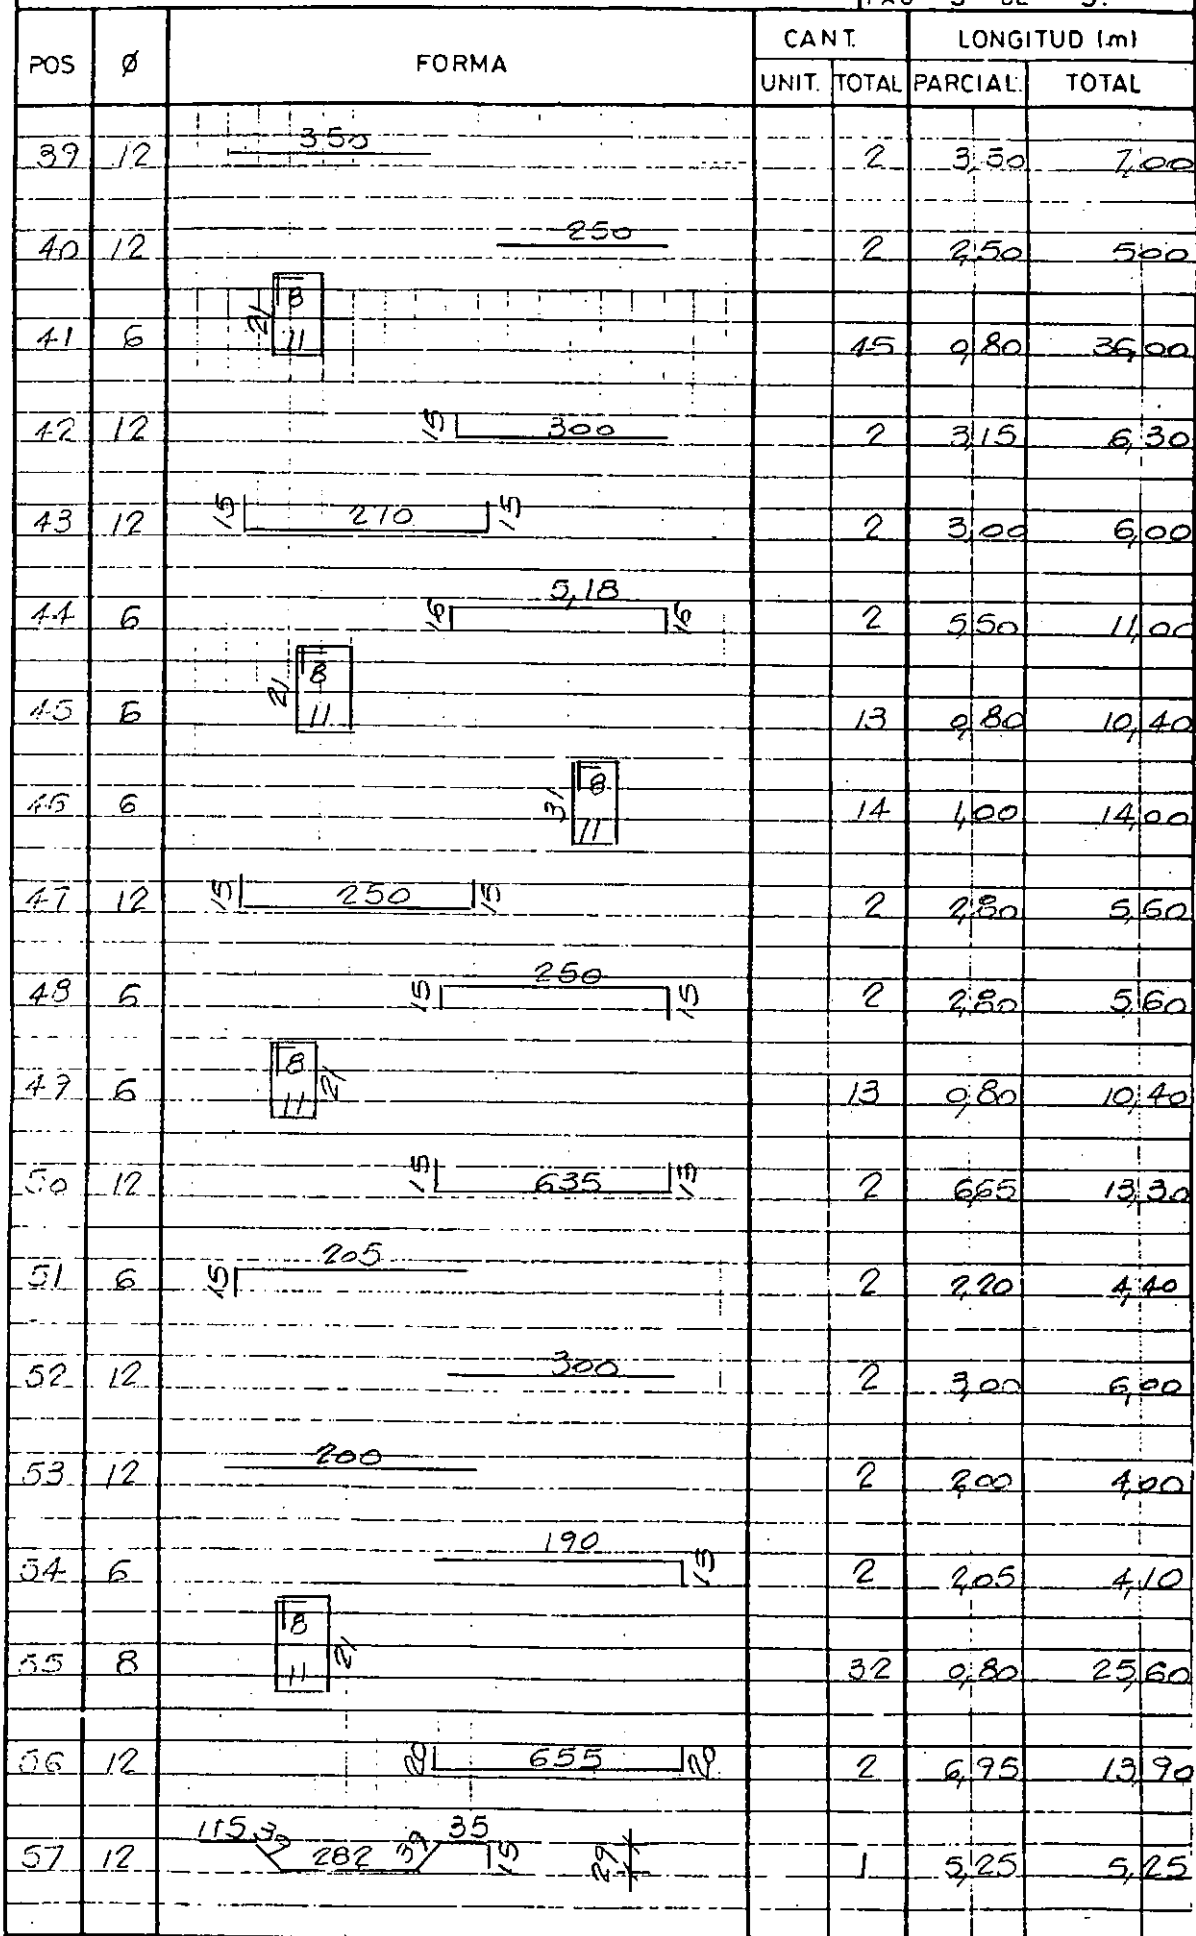 PAG 5 DE 5.
POS Ø FORMA CANT. LONGITUD (m)
UNIT. TOTAL PARCIAL. TOTAL
39 12 350 2 3,50 7,00
40 12 250 2 2,50 5,00
41 6 21 8 11 45 0,80 36,00
42 12 15 300 2 3,15 6,30
43 12 15 270 15 2 3,00 6,00
44 6 16 5,18 16 2 5,50 11,00
45 6 21 8 11 13 0,80 10,40
46 6 31 8 11 14 1,00 14,00
47 12 15 250 15 2 2,80 5,60
48 6 15 250 15 2 2,80 5,60
49 6 8 11 21 13 0,80 10,40
50 12 15 635 15 2 6,65 13,30
51 6 15 205 2 2,20 4,40
52 12 300 2 3,00 6,00
53 12 200 2 2,00 4,00
54 6 190 15 2 2,05 4,10
55 8 8 11 21 32 0,80 25,60
56 12 20 655 20 2 6,95 13,90
57 12 115 39 282 39 35 15 29 1 5,25 5,25